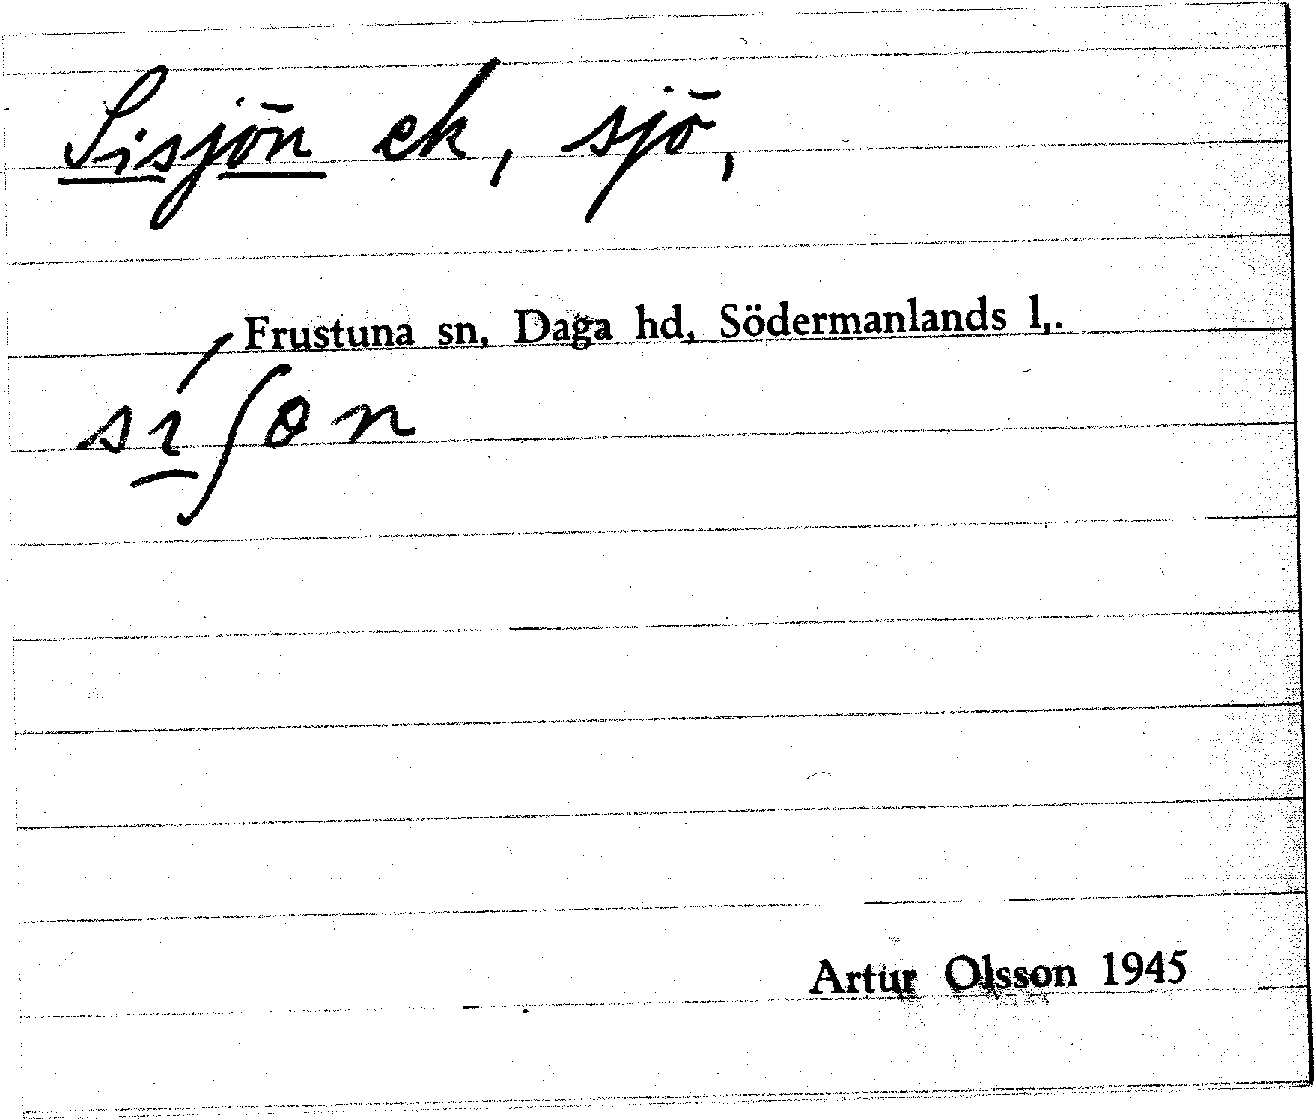 Sisjön ek, sjö,
Frustuna sn, Daga hd, Södermanlands l,.
sı̱́ʃɵn
Artur Olsson 1945